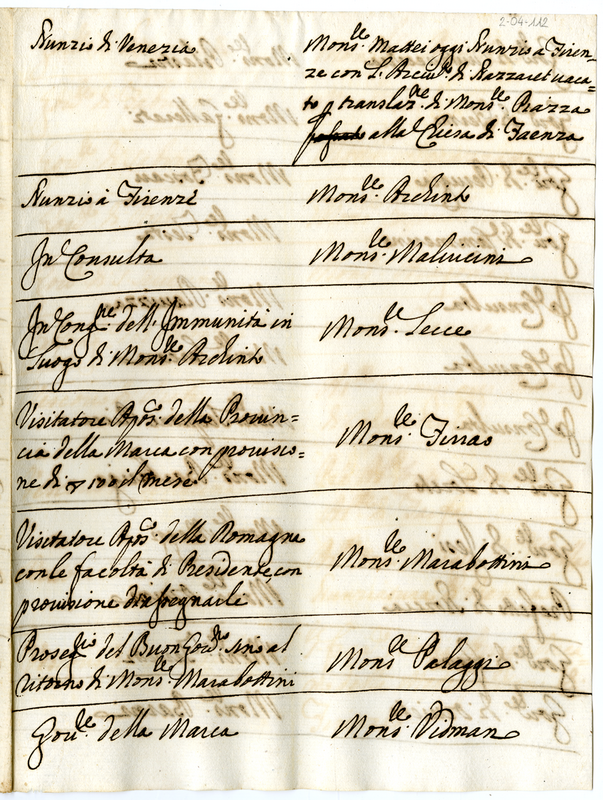 2-04-112
Nunzio di Venezia
Mons.re Mattei oggi Nunzio a Firen=
ze con l'Arciv.o di Nazzaret vaca=
to p translaz.ne di Mons.re Piazza
alla Chiesa di Faenza
Nunzio à Firenze
Mons.re Archinto
In Consulta
Mons.re Malvicini
In Cong.ne dell'Immunità in
luogo di Mons.re Archinto
Mons.re Lecce
Visitatore Ap.co della Provin=
cia della Marca con provisio=
ne di 100 il mese
Mons.re Firrao
Visitatore Ap.co della Romagna
con le facoltà di Presidente, con
provisione da assegnarle
Mons.re Marabottini
Proseg.rio del Buon Gov.no sino al
ritorno di Mons.re Marabottini
Mons.re Palazzi
Gov.re della Marca
Mons.re Vidman